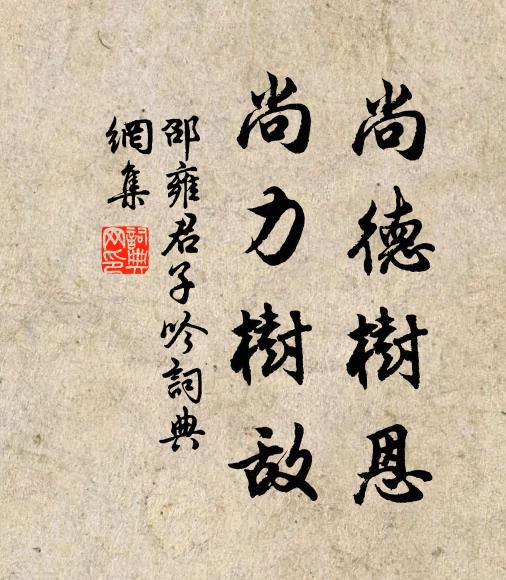 尚德樹恩
尚力樹敵
邵雍君子吟詞典
網集
詞典
网印